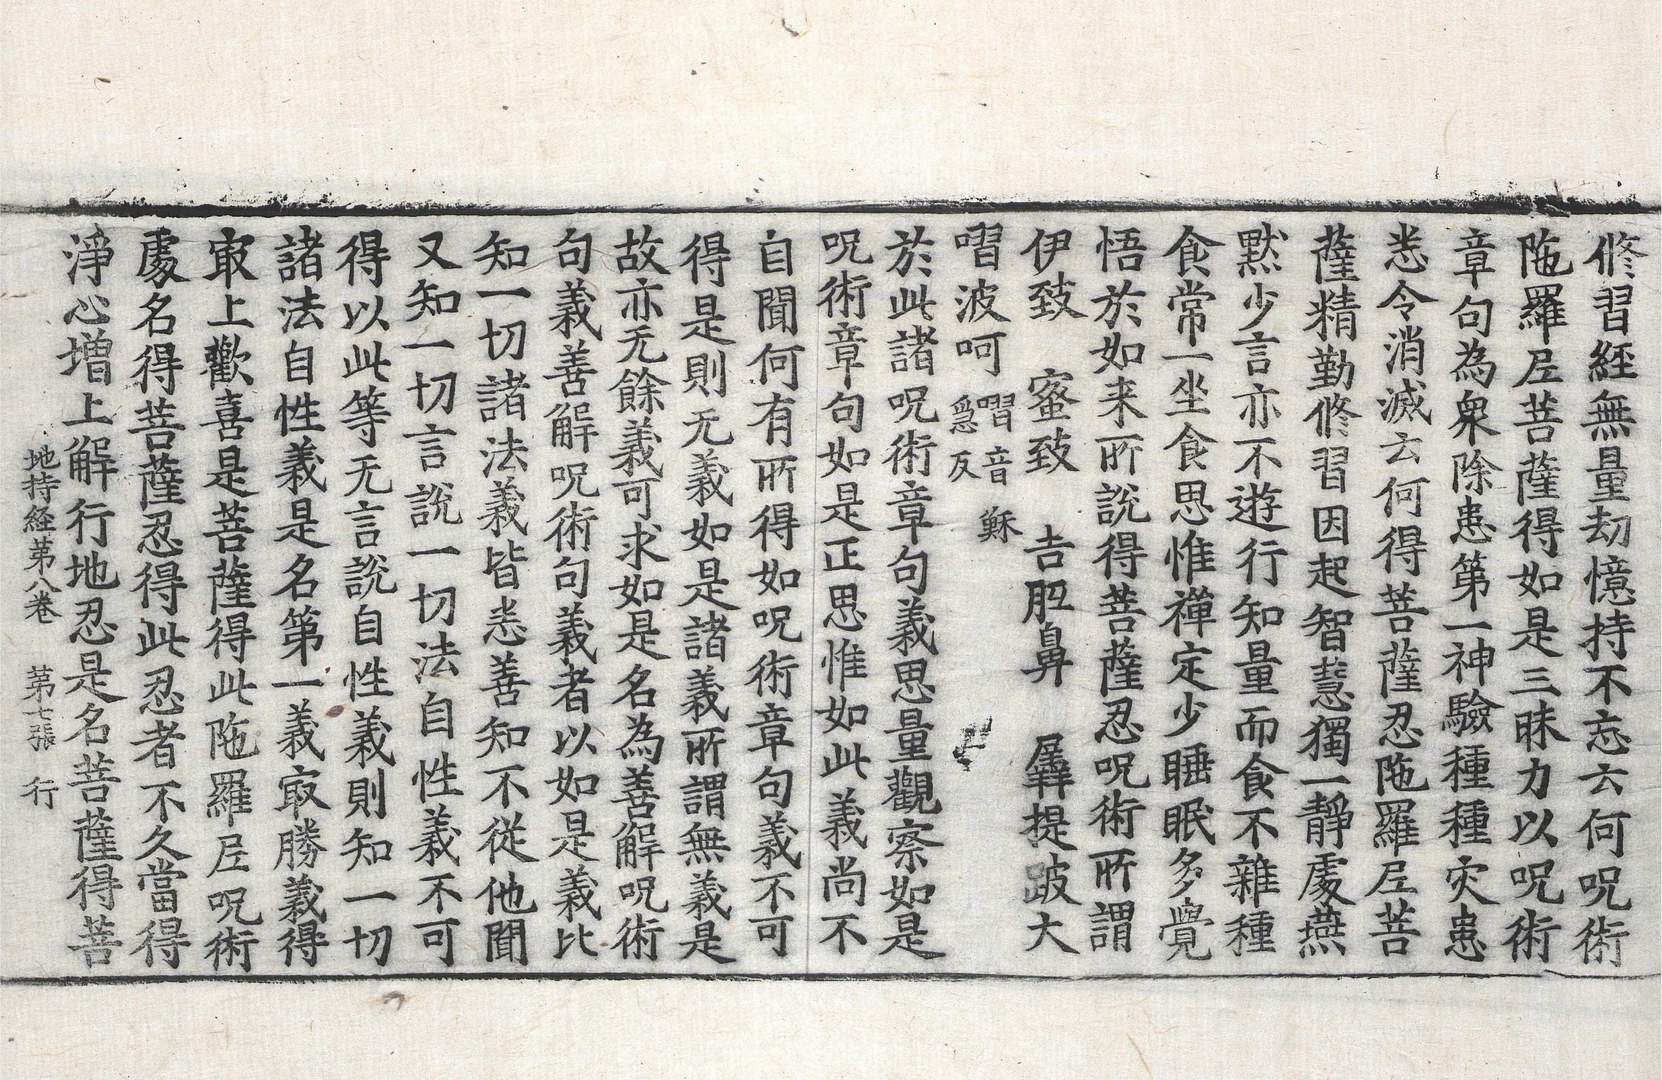 修習經無量劫憶持不忘云何呪術
陁羅尼菩薩得如是三昧力以呪術
章句為衆除患第一神驗種種灾患
悉令消滅云何得菩薩忍陁羅尼菩
薩精勤修習因起智慧獨一靜處燕
默少言亦不遊行知量而食不雜種
食常一坐食思惟禪定少睡眠多覺
悟於如来所說得菩薩忍呪術所謂
伊致　蜜致　吉胝鼻　羼提跛大
嗢波呵　嗢音穌
於此諸呪術章句義思量觀察如是
呪術章句如是正思惟如此義尚不
自聞何有所得如呪術章句義不可
得是則无義如是諸義所謂無義是
故亦无餘義可求如是名為善解呪術
句義善解呪術句義者以如是義比
知一切諸法義皆悉善知不從他聞
又知一切言說一切法自性義不可
得以此等无言說自性義則知一切
諸法自性義是名第一義㝡勝義得
㝡上歡喜是菩薩得此陁羅尼呪術
處名得菩薩忍得此忍者不久當得
淨心增上解行地忍是名菩薩得菩
地持經第八卷　第七張　行